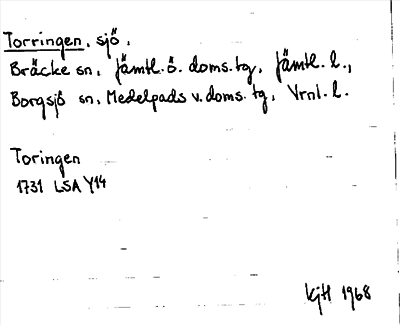 Torringen, sjö,
Bräcke sn, Jämtl. ö. doms. tg, Jämtl. l.,
Borgsjö sn, Medelpads v. doms. tg, Vrnl. l.
Toringen
1731 LSA Y14
KjH 1968